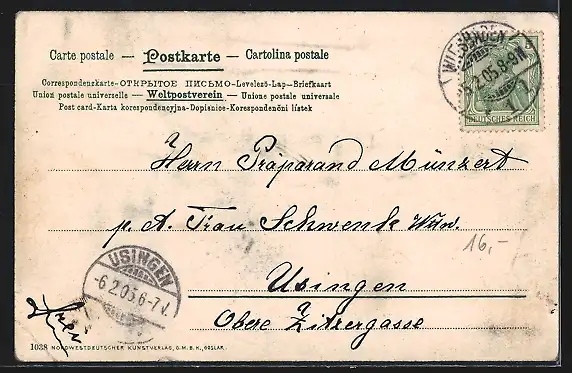 Carte postale — Postkarte — Cartolina postale
Correspondenzkarte-ОТКРЫТОЕ ПИСЬМО-Levelező-Lap-Briefkaart
Union postale universelle — Weltpostverein — Unione postale universale
Post card-Karta korespondencyjna-Dopisnice-Korespondenční lístek
WIESBADEN
5.2.05.8-9N
DEUTSCHES REICH
Herrn Präparand Münzert
p. A. Frau Schwenk Wtw.
16,-
Usingen
Obere Zitzergasse
USINGEN
-6.2.05.6-7V.
1038 NORDWESTDEUTSCHER KUNSTVERLAG, G.M.B.K., GOSLAR.